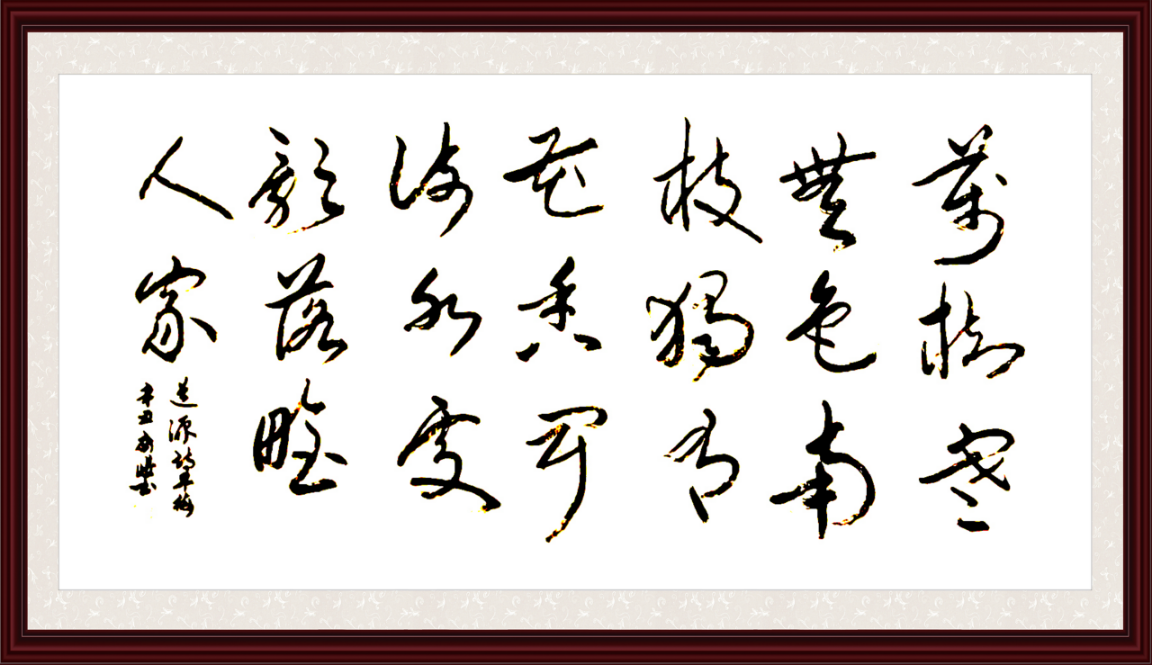 萬樹寒
無色南
枝獨有
花香聞
流水處
影落野
人家
道源詩早梅
辛丑